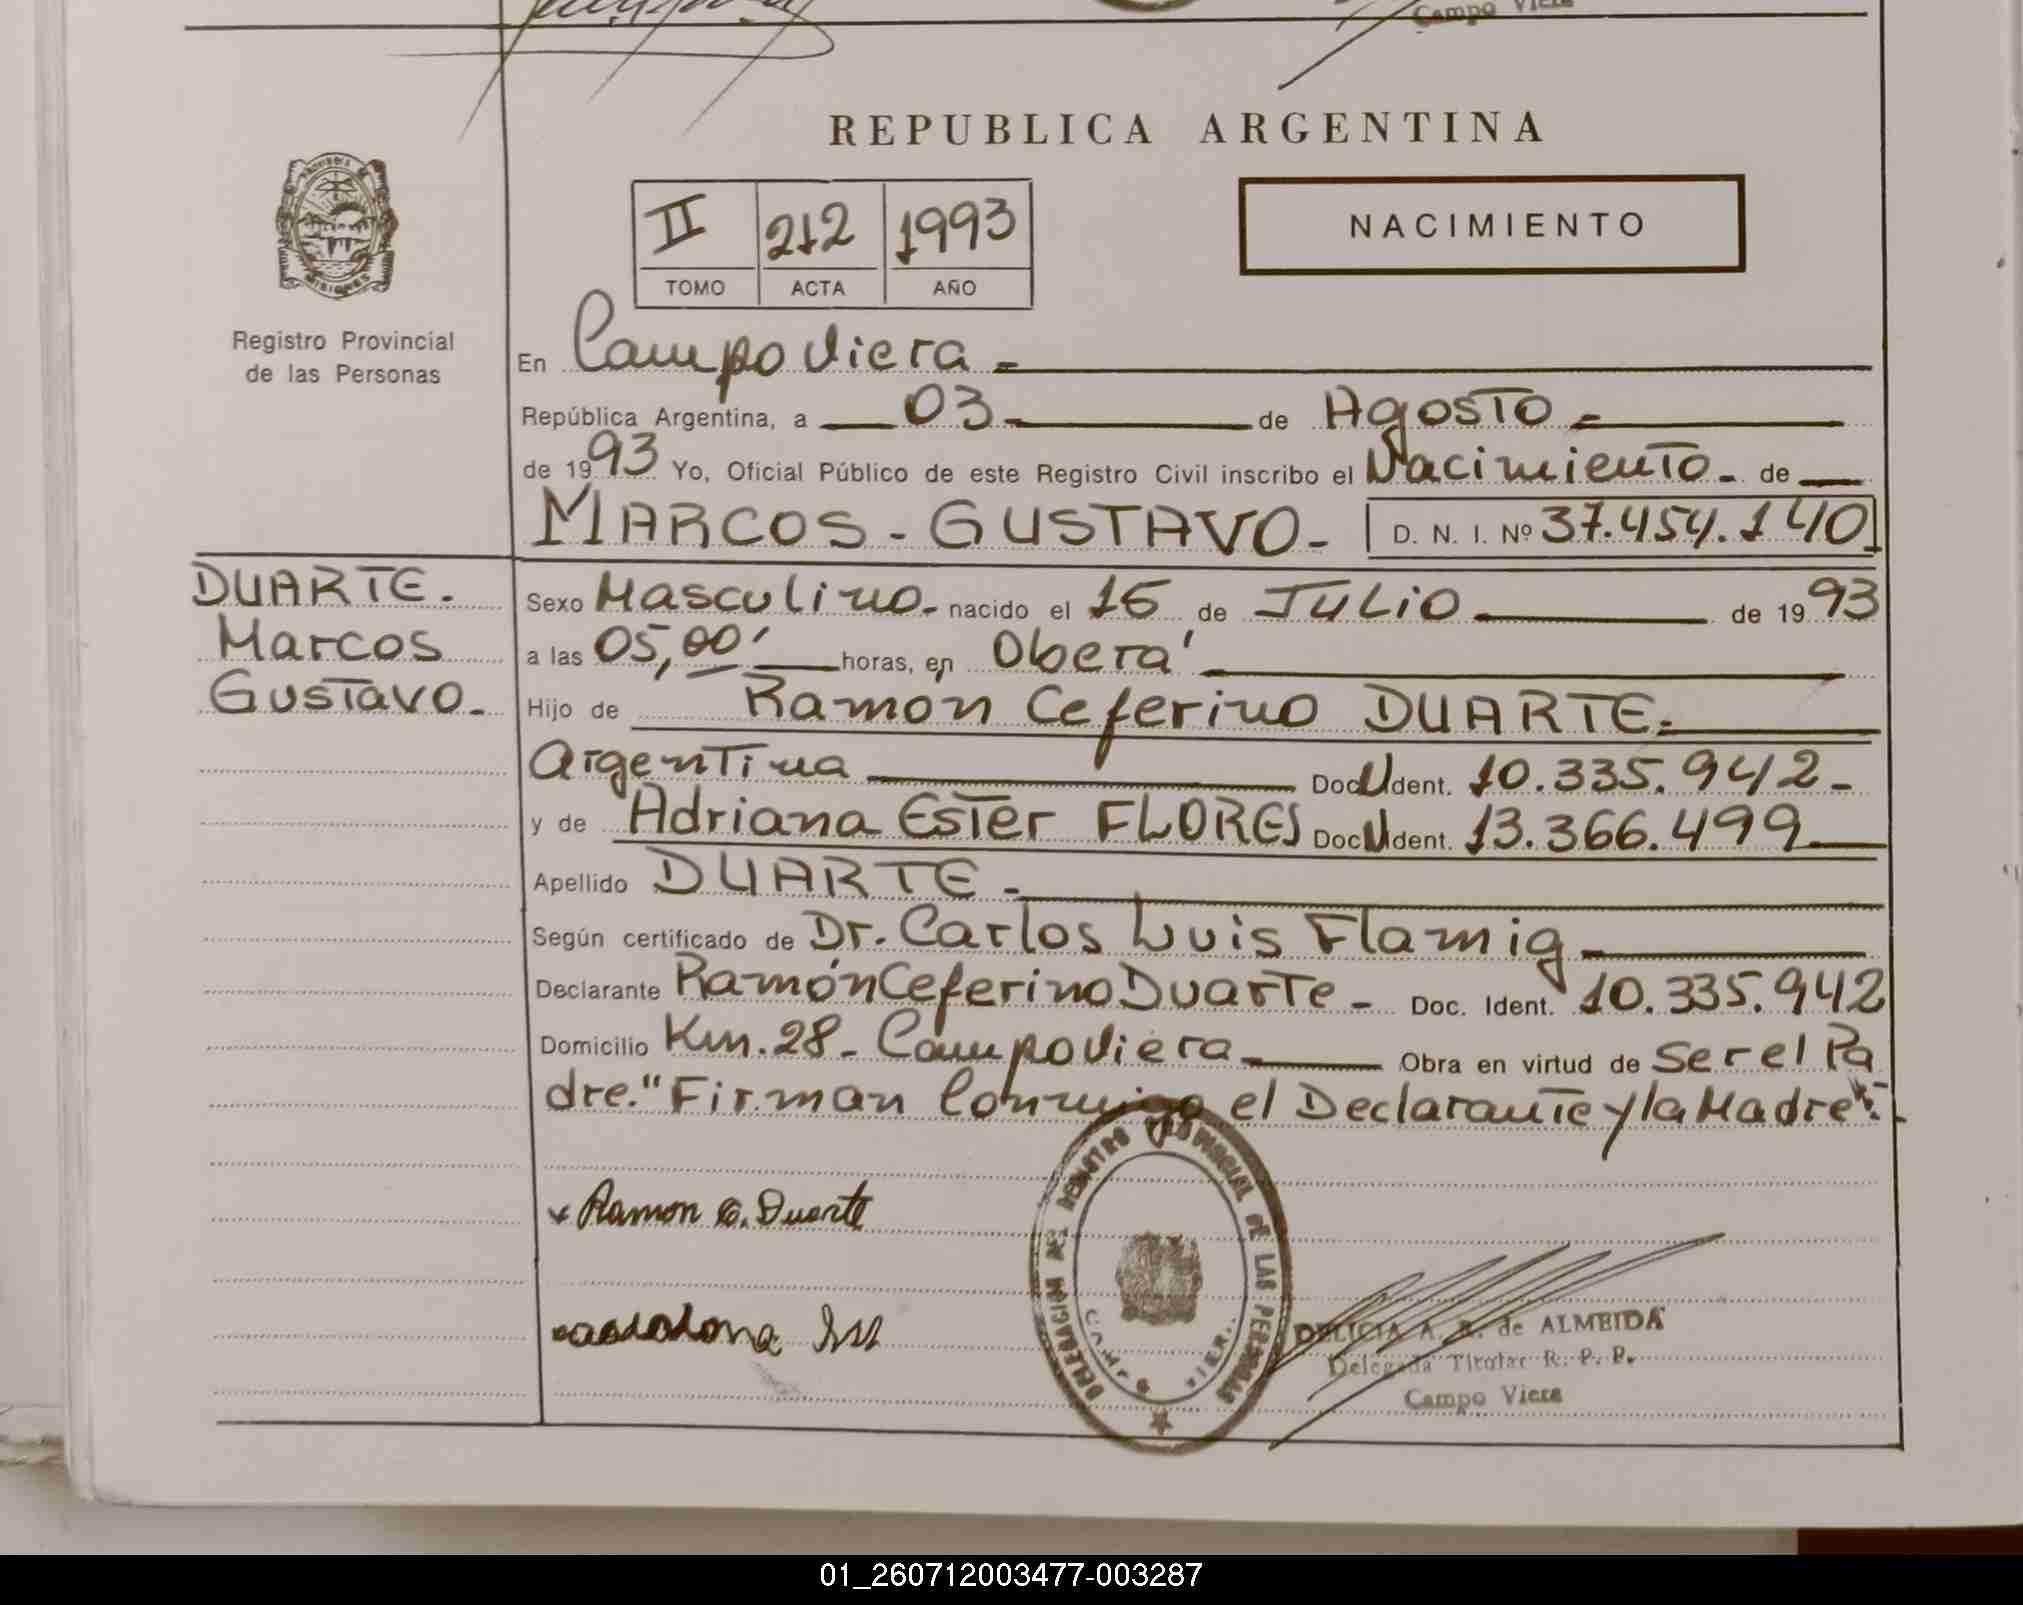 Campo Viera
REPUBLICA ARGENTINA
II 212 1993
TOMO ACTA AÑO
NACIMIENTO
Registro Provincial
de las Personas
En Campo Viera -
República Argentina, a 03 - de Agosto -
de 1993 Yo, Oficial Público de este Registro Civil inscribo el Nacimiento - de
MARCOS - GUSTAVO - D. N. I. Nº 37.454.140
DUARTE.
Marcos
Gustavo -
Sexo Masculino - nacido el 16 de JULIO de 1993
a las 05,00' horas, en Oberá
Hijo de Ramon Ceferino DUARTE -
Argentina DocUIdent. 10.335.942 -
y de Adriana Ester FLORES DocUIdent. 13.366.499
Apellido DUARTE -
Según certificado de Dr. Carlos Luis Flamig
Declarante Ramón Ceferino Duarte - Doc. Ident. 10.335.942
Domicilio Km. 28 - Campo Viera Obra en virtud de Ser el Pa
dre. "Firman Conmigo el Declarante y la Madre" -
Ramon C. Duarte
DELEGACION DEL REGISTRO PROVINCIAL DE LAS PERSONAS
CAMPO VIERA
DELICIA A. R. de ALMEIDA
Delegada Titular R. P. P.
Campo Viera
01_260712003477-003287